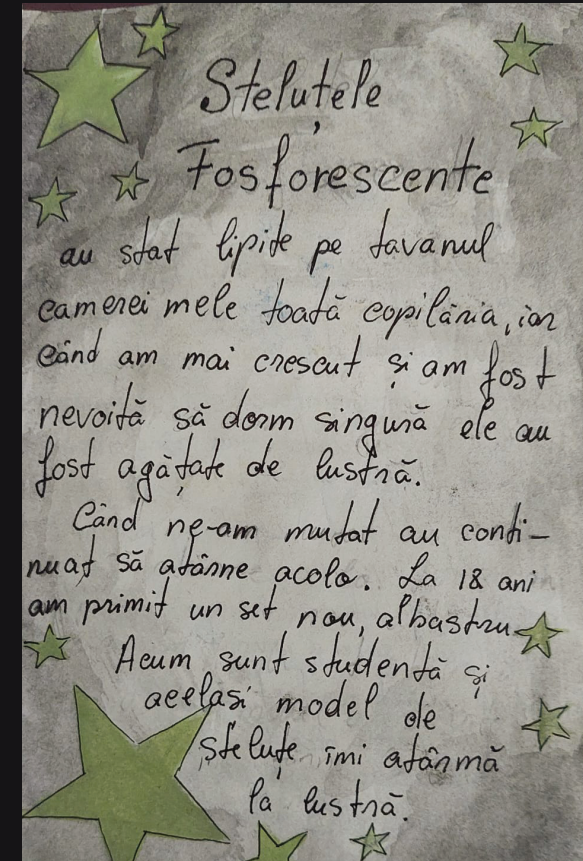 Steluțele
Fosforescente
au stat lipite pe tavanul
camerei mele toată copilăria, iar
când am mai crescut și am fost
nevoită să dorm singură ele au
fost agățate de lustră.
Când ne-am mutat au conti-
nuat să atârne acolo. La 18 ani
am primit un set nou, albastru.
Acum sunt studentă și
același model de
steluțe îmi atârnă
la lustră.